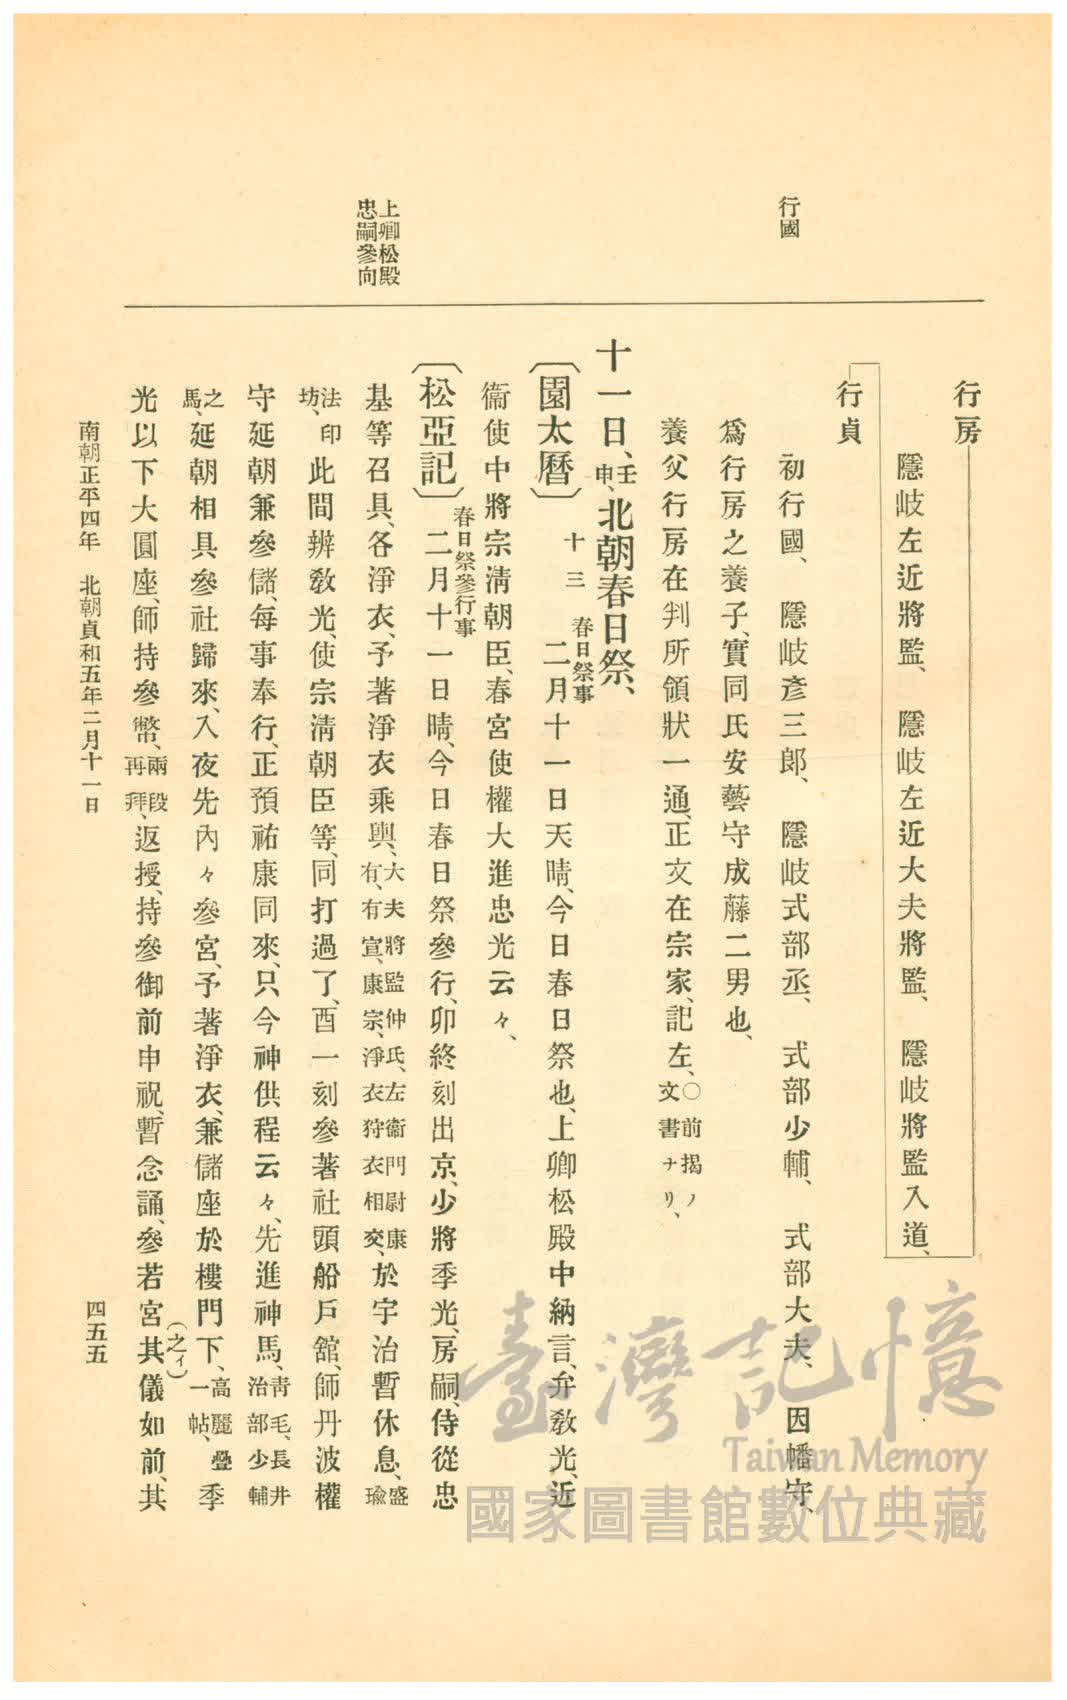 行國
上卿松殿
忠嗣參向
行房
隱岐左近將監、隱岐左近大夫將監、隱岐將監入道、
行貞
初行國、隱岐彥三郞、隱岐式部丞、式部少輔、式部大夫、因幡守、
爲行房之養子、實同氏安藝守成藤二男也、
養父行房在判所領狀一通、正文在宗家、記左、〇前揭ノ文書ナリ、
十一日、壬申、北朝春日祭、
〔園太曆〕十三 春日祭事 二月十一日天晴、今日春日祭也、上卿松殿中納言、弁敎光、近
衞使中將宗淸朝臣、春宮使權大進忠光云々、
〔松亞記〕春日祭參行事 二月十一日晴、今日春日祭參行、卯終刻出京、少將季光、房嗣、侍從忠
基等召具、各淨衣、予著淨衣乘輿、大夫將監仲氏、左衞門尉康有、有宣、康宗、淨衣狩衣相交、於宇治暫休息、盛瑜
法印坊、此間辨敎光、使宗淸朝臣等、同打過了、酉一刻參著社頭船戶舘、師丹波權
守延朝兼參儲、每事奉行、正預祐康同來、只今神供程云々、先進神馬、靑毛、長井治部少輔
之馬、延朝相具參社歸來、入夜先內々參宮、予著淨衣、兼儲座於樓門下、高麗疊一帖、季
光以下大圓座、師持參幣、兩段再拜、返授、持參御前申祝、暫念誦、參若宮其(之イ)儀如前、其
南朝正平四年 北朝貞和五年二月十一日
四五五
臺灣記憶
Taiwan Memory
國家圖書館數位典藏